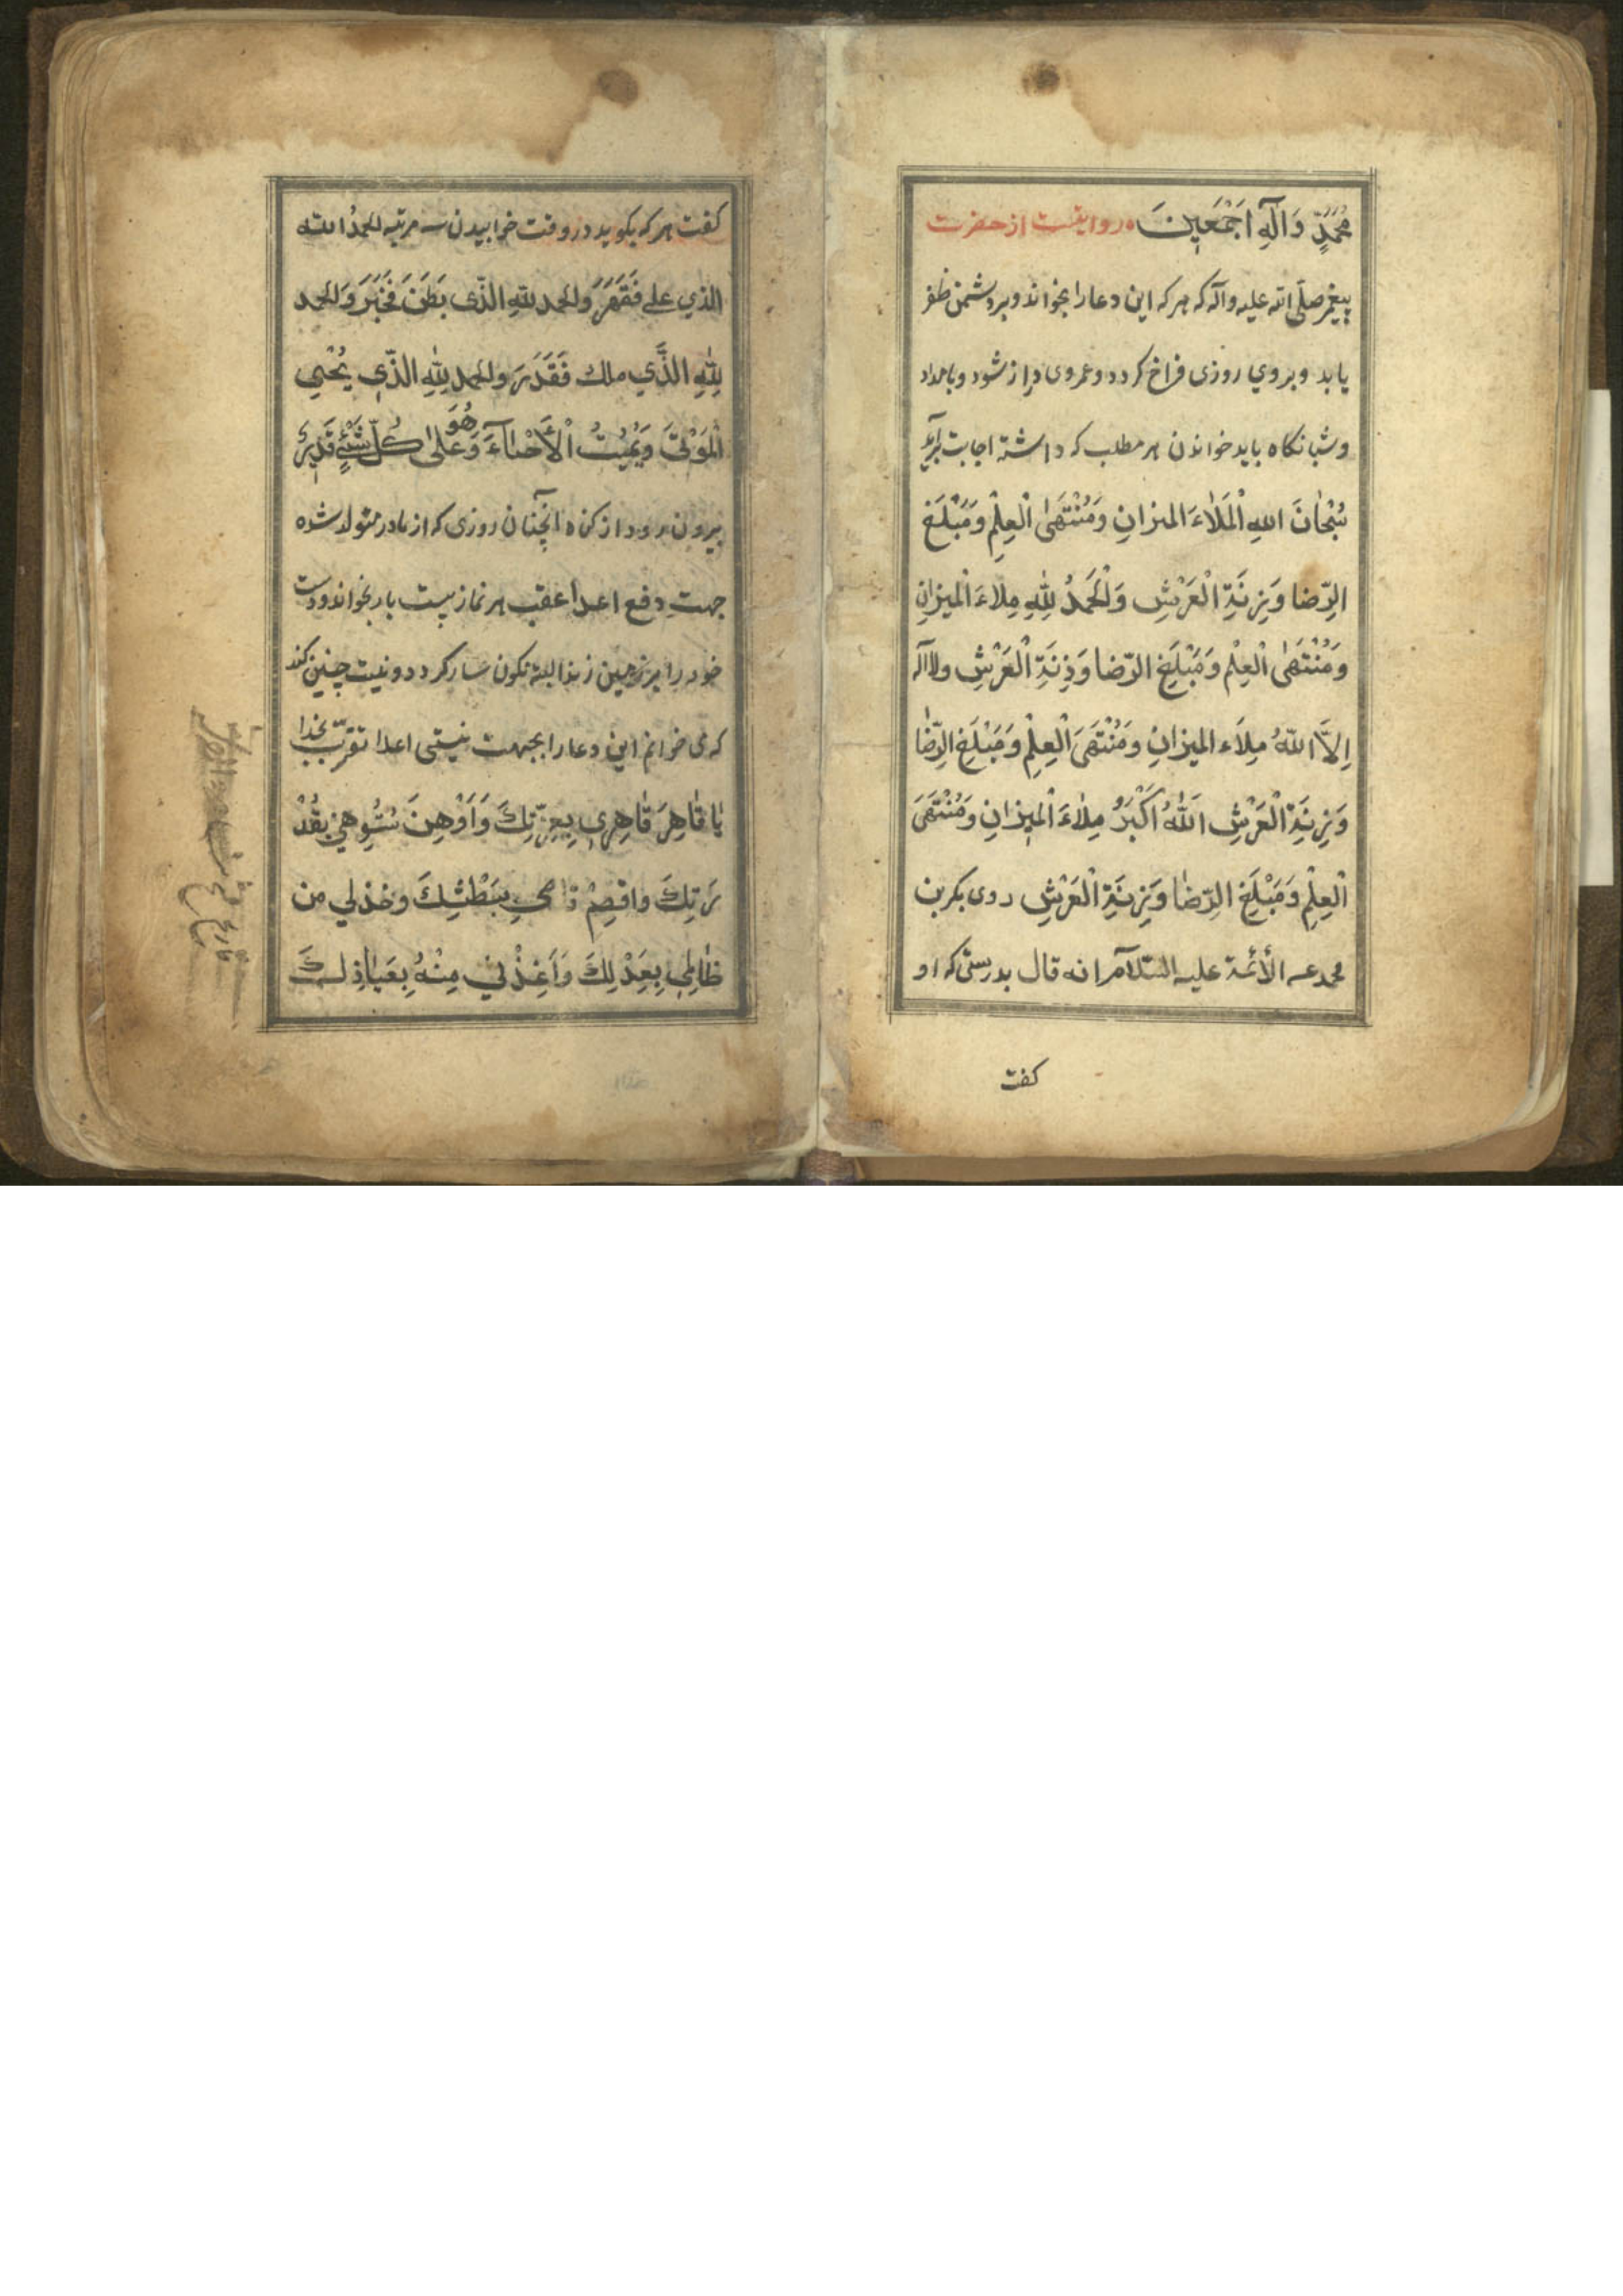 مُحَمَّدٍ وَآلِهِ اَجْمَعِينَ روایتست از حضرت
پیغمبر صلّی الله علیه وآله که هر که این دعا را بخواند و بر دشمن ظفر
یابد و بروي روزی فراخ کردد و عمر وی دراز شود و بامداد
و شبانکاه باید خواندن هر مطلب که داشته اجابت برآید
سُبْحٰانَ اللهِ الْمَلٰاءَ المیزانِ وَمُنْتَهَیٰ الْعِلْمِ وَمَبْلَغَ
الرِّضا وَزِنَةِ الْعَرْشِ وَلْحَمْدُ لِلّٰهِ مِلاءَ الْمیزانِ
وَمُنْتَهَیٰ الْعِلْم وَمَبْلَغِ الرّضا وَذِنَةِ الْعَرْشِ ولا اله
اِلاَّ اللّٰهُ مِلاَء المیزانِ وَمُنْتَهَیَ الْعِلْمِ وَمَبْلَغِ الرِّضٰا
وَزِنَةِ الْعَرْشِ اَللّٰهُ اَكْبَرُ مِلٰاءَ الْمیزانِ وَمُنْتَهَیَ
الْعِلْمِ وَمَبْلَغِ الرِّضٰا وَزِنَةِ الْعَرْشِ روی بکر بن
محمد عـ الأئمة علیه السّلام انه قال بدرستی که او
کفت
کفت هر که بکوید در وقت خوابیدن سه مرتبه لحمدُ الله
الذي علی فَقَهَرَ ولحمد للهِ الذّی بَطَنَ فَخَبَرَ وَلحمد
لِلّٰهِ الَّذي ملك فَقَدَرَ ولحمد لِلّٰهِ الذّي یُحْیي
الْمَوْتیٰ وَیُمیْتُ الْأَحْیٰآءَ وَهُوَ عَلیٰ کُلّ شَیْءٍ قَدِیرٌ
بیرون رود از کناه آنچنان روزی که از مادر متولد شده
جهت دفع اعدا عقب هر نماز بیست بار بخواند و دست
خود را بر زمین زند البته نکون سار کردد و نیت چنین کند
که می خوانم این دعا را بجهت نیستی اعدا تقرّب بخدا
یٰا قٰاهِرَ قٰاهِري بِعِزّتِكَ وَاَوْهِنَ مُسْتَوهِنِي بِقُدْ
رَتِكَ واقصِمْ قٰاصمي بِبَطْشِكَ وخذلي من
ظٰالِمي بِعَدْلِكَ وَاَعِذْني مِنْهُ بِعَیٰاذِكَ